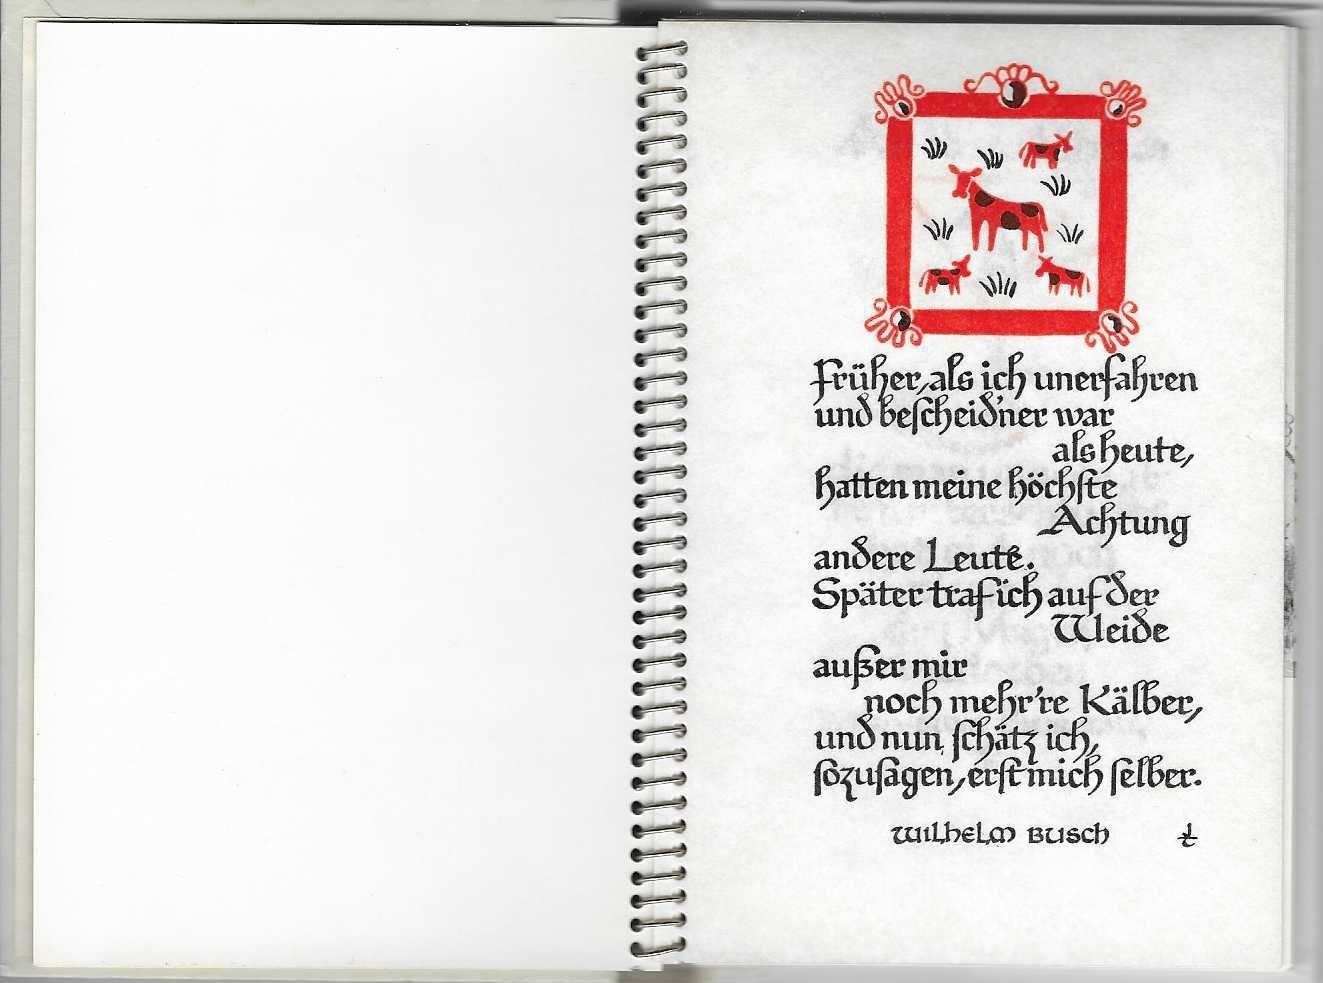 Früher, als ich unerfahren
und bescheid'ner war
als heute,
hatten meine höchste
Achtung
andere Leute.
Später traf ich auf der
Weide
außer mir
noch mehr're Kälber,
und nun schätz ich,
sozusagen, erst mich selber.
Wilhelm Busch